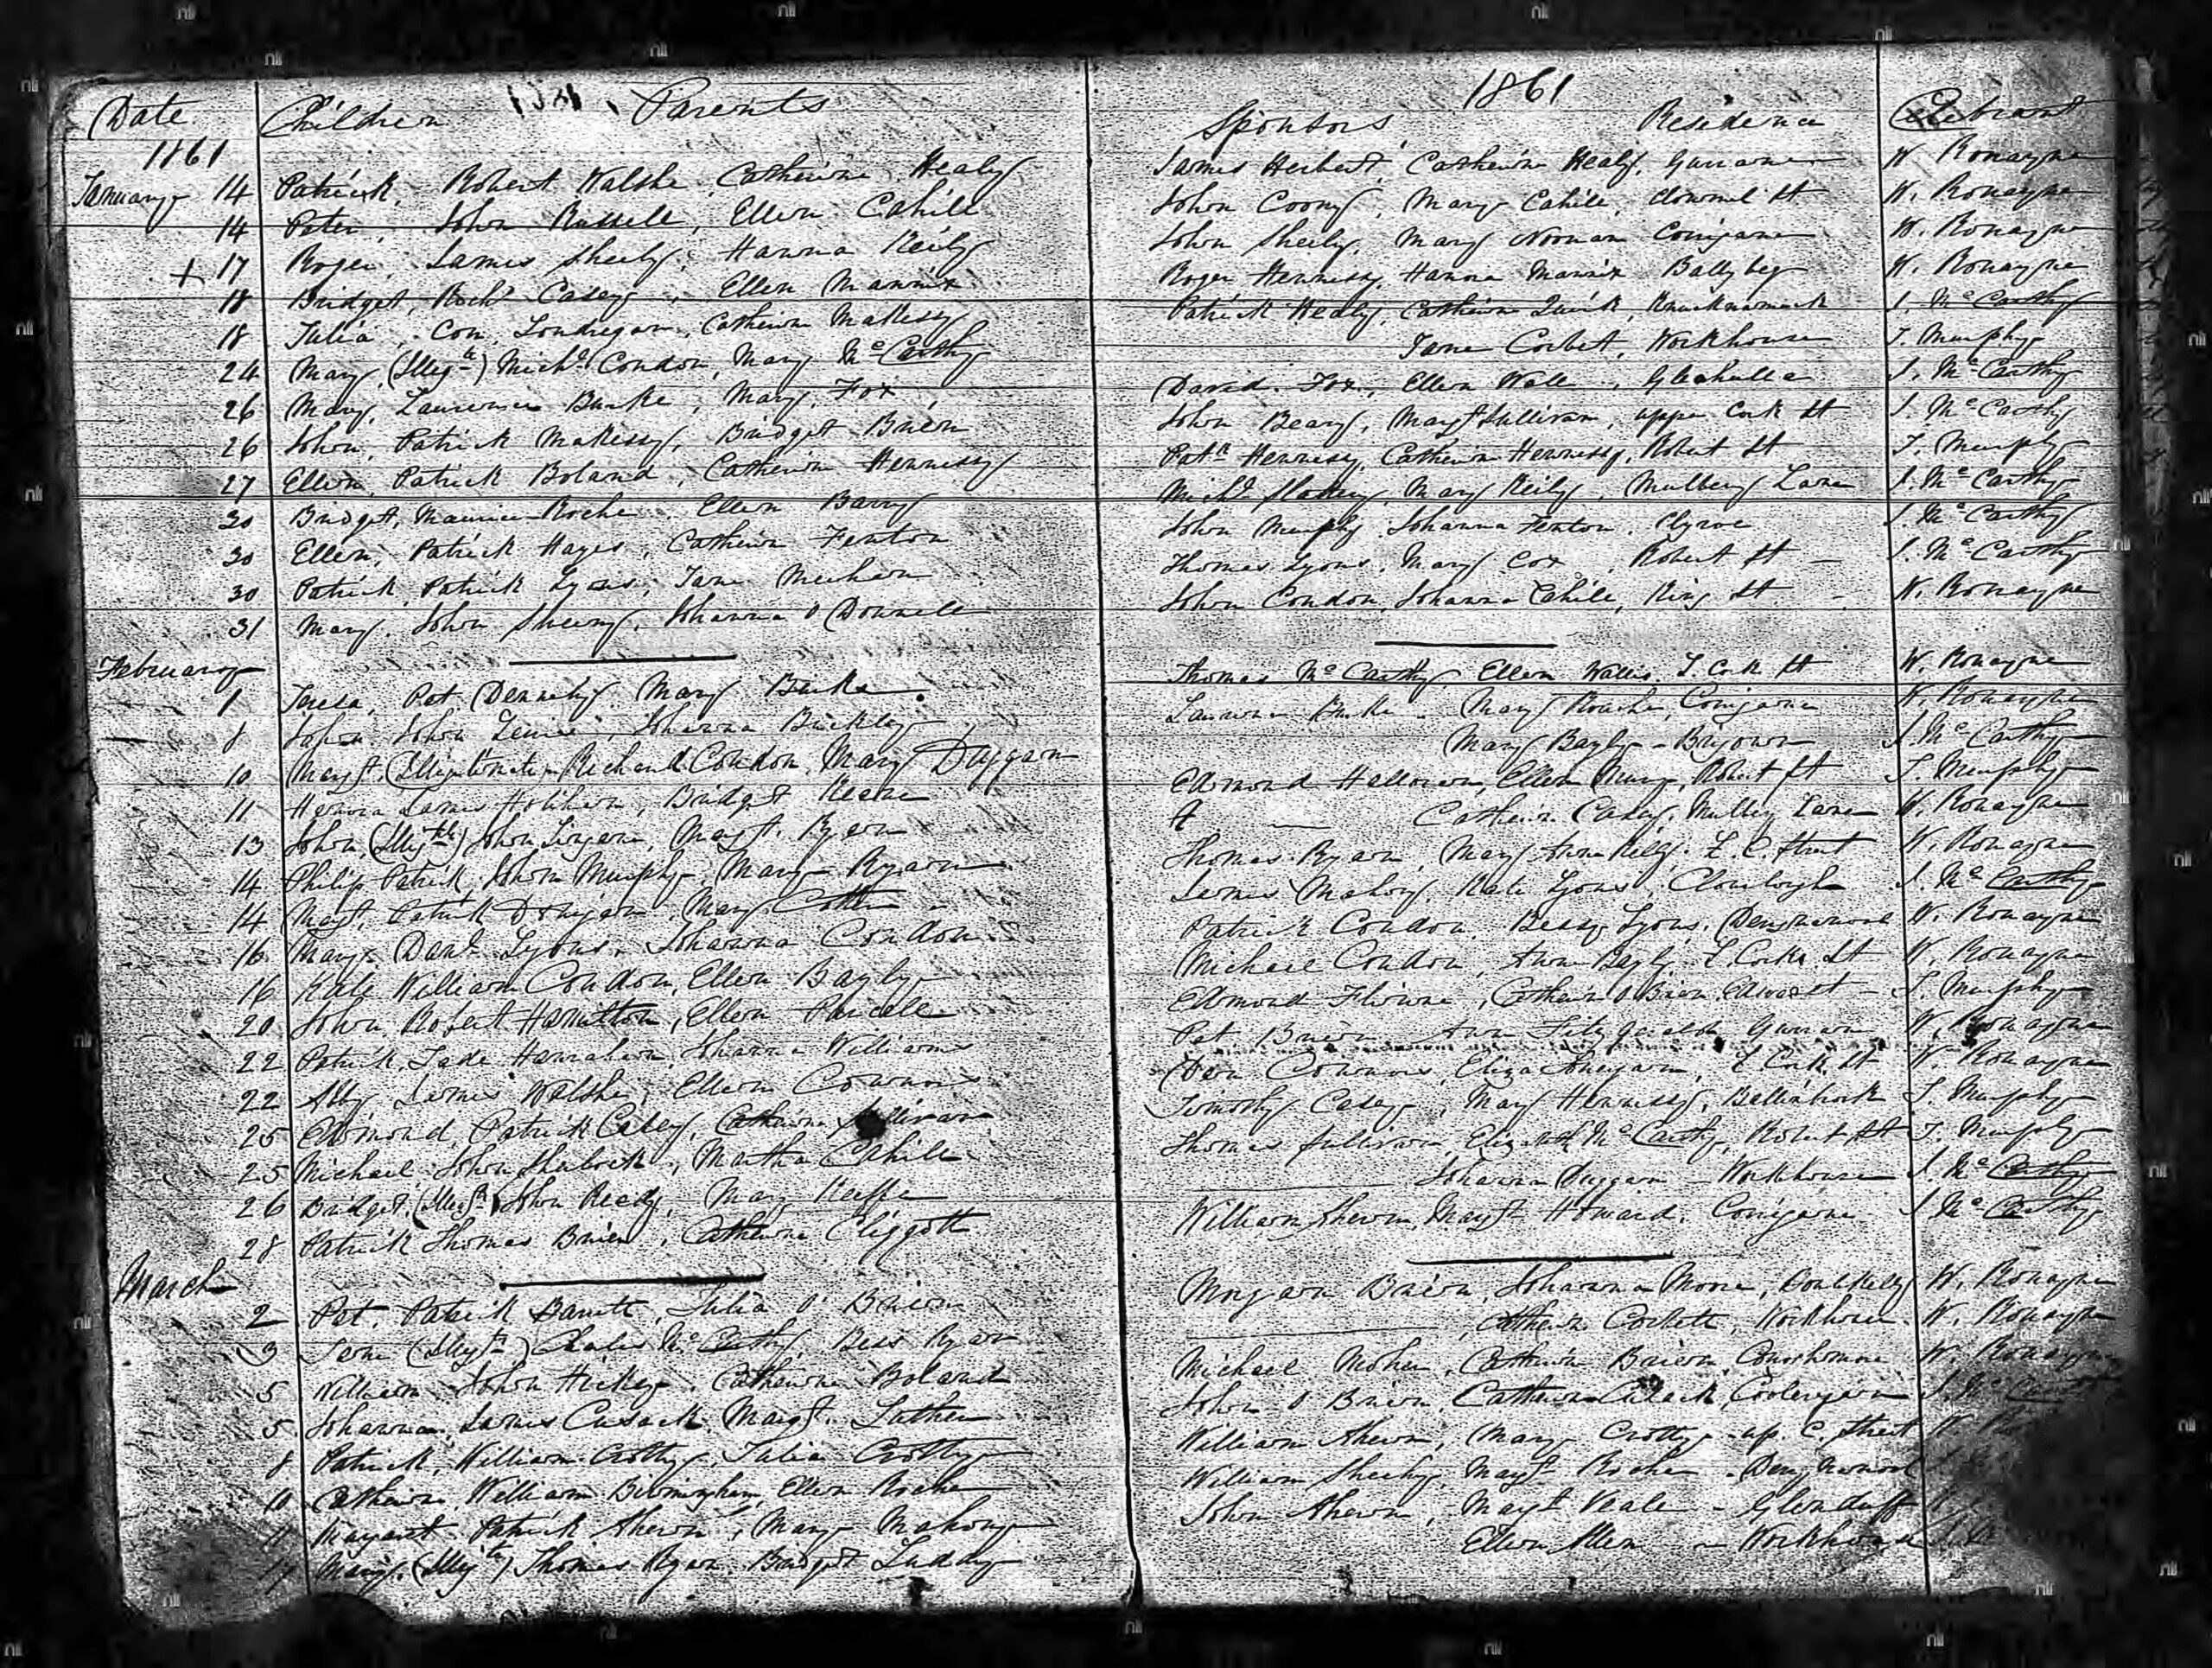 1861
Date Children Parents Sponsors Residence Celebrant
1861
January 14 Patrick, Robert Walshe, Catherine Healy James Herbert, Catherine Healy, W. Ronayne
14 Peter, John Russell, Ellen Cahill John Coony, Mary Cahill, Clonmel St W. Ronayne
+ 17 Roger, James Sheehy, Hanna Reily John Sheehy, Mary Noonan Corrigane W. Ronayne
18 Bridget, Richd Casey, Ellen Mannix Roger Hennessy, Hanna Mannix Ballybeg W. Ronayne
18 Julia, Con. Londregan, Catherine Makessy Patrick Healy, Catherine Quirk, J. McCarthy
24 Mary, (Illegte) Michl Condon, Mary McCarthy Jane Corbet, Workhouse T. Murphy
26 Mary, Laurence Burke, Mary Fox, David Fox, Ellen Wall, J. McCarthy
26 John, Patrick Makessy, Bridget Brien John Beary, Maryt Sullivan, upper Cork St J. McCarthy
27 Ellen, Patrick Boland, Catherine Hennessy Patk Hennessy, Catherine Hennessy, Robert St T. Murphy
30 Bridget, Maurice Roche, Ellen Barry Michl Slattery, Mary Reily, Mulbery Lane J. McCarthy
30 Ellen, Patrick Hayes, Catherine Fenton John Murphy, Johanna Fenton, J. McCarthy
30 Patrick, Patrick Lyons, Jane Meehan Thomas Lyons, Mary Cox, Robert St J. McCarthy
31 Mary, John Sheeny, Johanna O Donnell John Condon, Johanna Cahill, King St W. Ronayne
February
1 Teresa, Pat Dennehy, Mary Burke Thomas McCarthy, Ellen Wallis, L. Cork St W. Ronayne
8 John Johanna Buckley Laurence Burke, Mary Roache, Corrigane W. Ronayne
10 Maryt. (Illigitimate) Richard Condon, Mary Duggan Mary Bayly - Brigown J. McCarthy
11 Honora James Holihan, Bridget Keane Edmond Halloran, Ellen Robert St T. Murphy
13 John, (Illegte) John Maryt. Ryan Catherine Casey, Mulbery Lane W. Ronayne
14 Philip Patrick, John Murphy, Mary Ryan Thomas Ryan, Mary Anne Kelly, L. C. Street W. Ronayne
14 Maryt. Patrick Donegan, Mary Cotter James Mahony, Kate Lyons, Clonlough J. McCarthy
16 Mary, Danl Lyons, Johanna Condon Patrick Condon, Bessy Lyons, W. Ronayne
16 Kate William Condon, Ellen Bayly Michael Condon, Anne Bayly, L. Cork St W. Ronayne
20 John, Robert Hamilton, Ellen Purcell Edmond Flinne, Catherine O Brien, T. Murphy
22 Patrick, Hanrahan, Johanna Williams Pat Brien Ann Fitzgerald W. Ronayne
22 Abby James Walshe, Ellen Connors Connors, Eliza L. Cork St W. Ronayne
25 Edmond, Patrick Casey, Catherine Sullivan Timothy Casey, Mary Hennessy, T. Murphy
25 Michael, John Sherlock, Martha Cahill Thomas Sullivan, Elizabeth McCarthy, Robert St T. Murphy
26 Bridget, (Illegte) John Ready, Mary Keeffe Johanna Duggan - Workhouse J. McCarthy
28 Patrick Thomas Brien, Catherine Cliggott William Ahern, Maryt Howard, Corrigane J. McCarthy
March
2 Pat, Patrick Barrett, Julia O' Brien Morgan Brien, Johanna Moore, W. Ronayne
3 Jane (Illegte) Charles McCarthy, Bess Ryan Catherine Corbett, Workhouse W. Ronayne
5 William John Hickey, Catherine Boland Michael Catherine Brien, W. Ronayne
5 Johanna, James Cusack, Maryt. John O Brien, Catherine Cusack, J. Mc
8 Patrick, William Crotty, Julia Crotty William Ahern, Mary Crotty - up. C. Street W.
10 Catherine, William Birmingham, Ellen Roche William Sheehy, Maryt Roche
11 Margaret Patrick Ahern, Mary Mahony John Ahern, Maryt Veale - Glenduff
17 Mary, (Illegte) Thomas Ryan, Bridget Luddy Ellen Allen - Workhouse